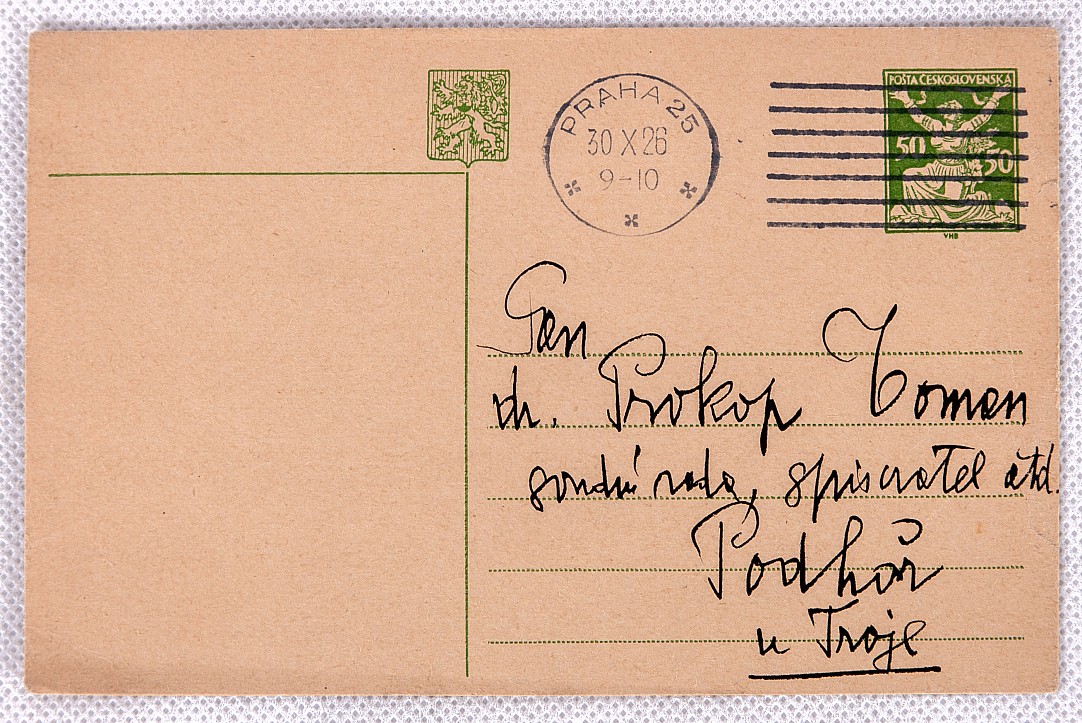 POŠTA ČESKOSLOVENSKÁ
PRAHA 25
30 X 26
9-10
50 50
VHB
Pan
dr. Prokop Toman
soudní rada, spisovatel atd.
Podhoř
u Troje